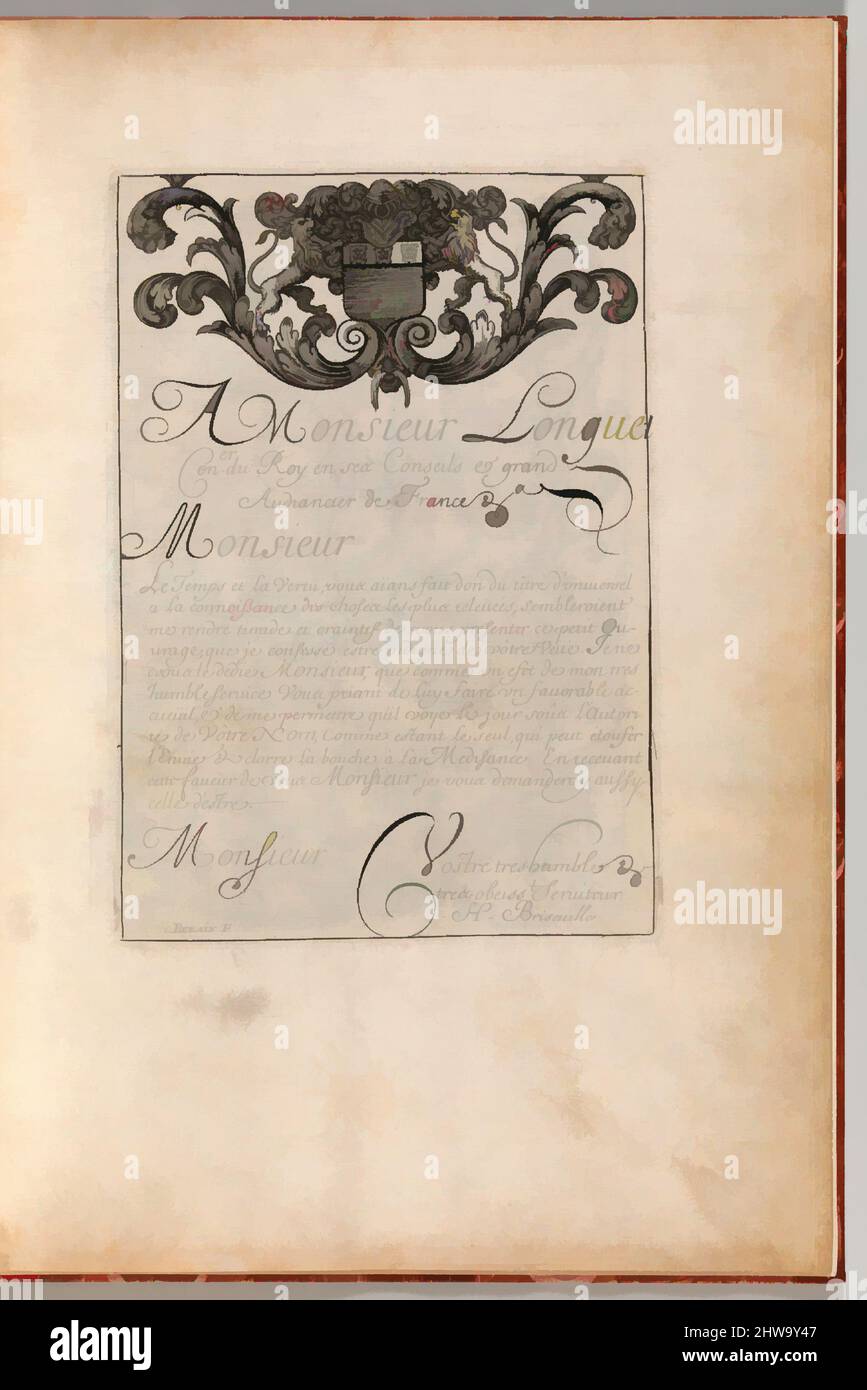 A Monsieur Longuei
Con.er du Roy en ses Conseils & grand
Audiancier de France &a
Monsieur
Le Temps et la Vertu, vous aians fait don du titre d'universel
a la connoissance des choses les plus relevées, sembleroient
me rendre timide et craintif de vous presenter ce petit Ou-
vrage, que je confesse estre votre Veüe. Je ne
vous le dedie Monsieur, que comme un efet de mon tres
humble service Vous priant de luy faire un favorable ac-
cueuil, & de me permettre quil voye le jour sous l'Autori
té de Votre Nom, Comme estant le seul, qui peut etoufer
l'Envie & clorre la bouche à la Medisance En recevant
cette faveur de vous Monsieur je vous demanderay aussy
celle d'estre
Monsieur
Vostre tres humble &
tres obeisst. Serviteur
H. Brisville
Berain F
alamy
alamy
alamy
Image ID: 2HW9Y47
www.alamy.com